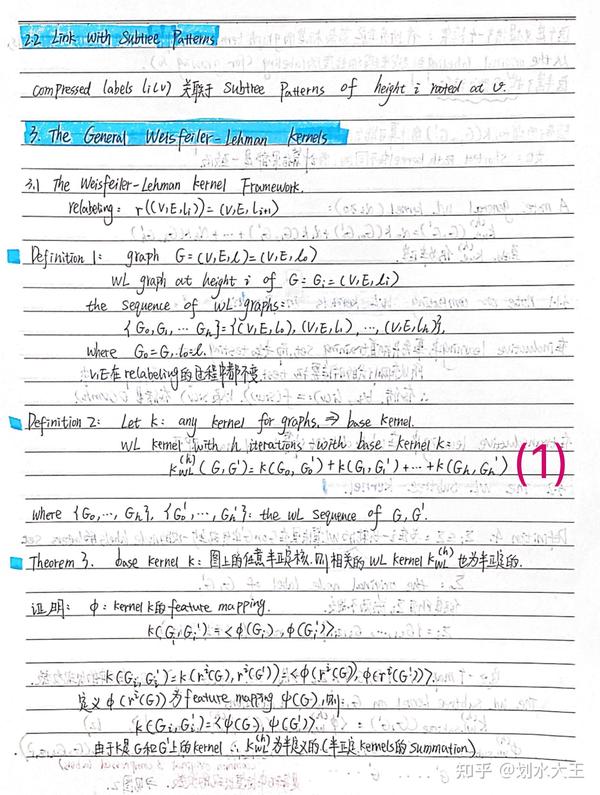 2.2 Link with Subtree Patterns
compressed labels li(v) 关联于 Subtree Patterns of height i rooted at v.
3. The General Weisfeiler-Lehman Kernels
3.1 The Weisfeiler-Lehman Kernel Framework.
relabeling: r((V,E,li)) = (V,E,li+1)
Definition 1: graph G = (V,E,l) = (V,E,l0)
WL graph at height i of G: Gi = (V,E,li)
the sequence of WL graphs:
{G0,G1,... Gh} = {(V,E,l0), (V,E,l1), ..., (V,E,lh)},
where G0=G, l0=l.
V,E在relabeling的过程中都不变.
Definition 2: Let k: any kernel for graphs, ⇒ base kernel.
WL kernel with h iterations with base kernel k:
kWL(h)(G,G') = k(G0,G0') + k(G1,G1') + ... + k(Gh,Gh') (1)
where {G0,...,Gh}, {G0',...,Gh'}: the WL sequence of G,G'.
Theorem 3. base kernel k: 图上的任意半正定核. 则相关的 WL kernel kWL(h) 也为半正定的.
证明: φ: kernel k的feature mapping.
k(Gi,Gi') = <φ(Gi), φ(Gi')>.
k(Gi,Gi') = k(ri(G), ri(G')) = <φ(ri(G)), φ(ri(G'))>.
定义 φ(ri(G)) 为feature mapping ψ(G), 则:
k(Gi,Gi') = <ψ(G), ψ(G')>
由于k是G和G'上的kernel ∴ kWL(h) 为半正定的 (半正定kernels的summation)
知乎 @划水大王